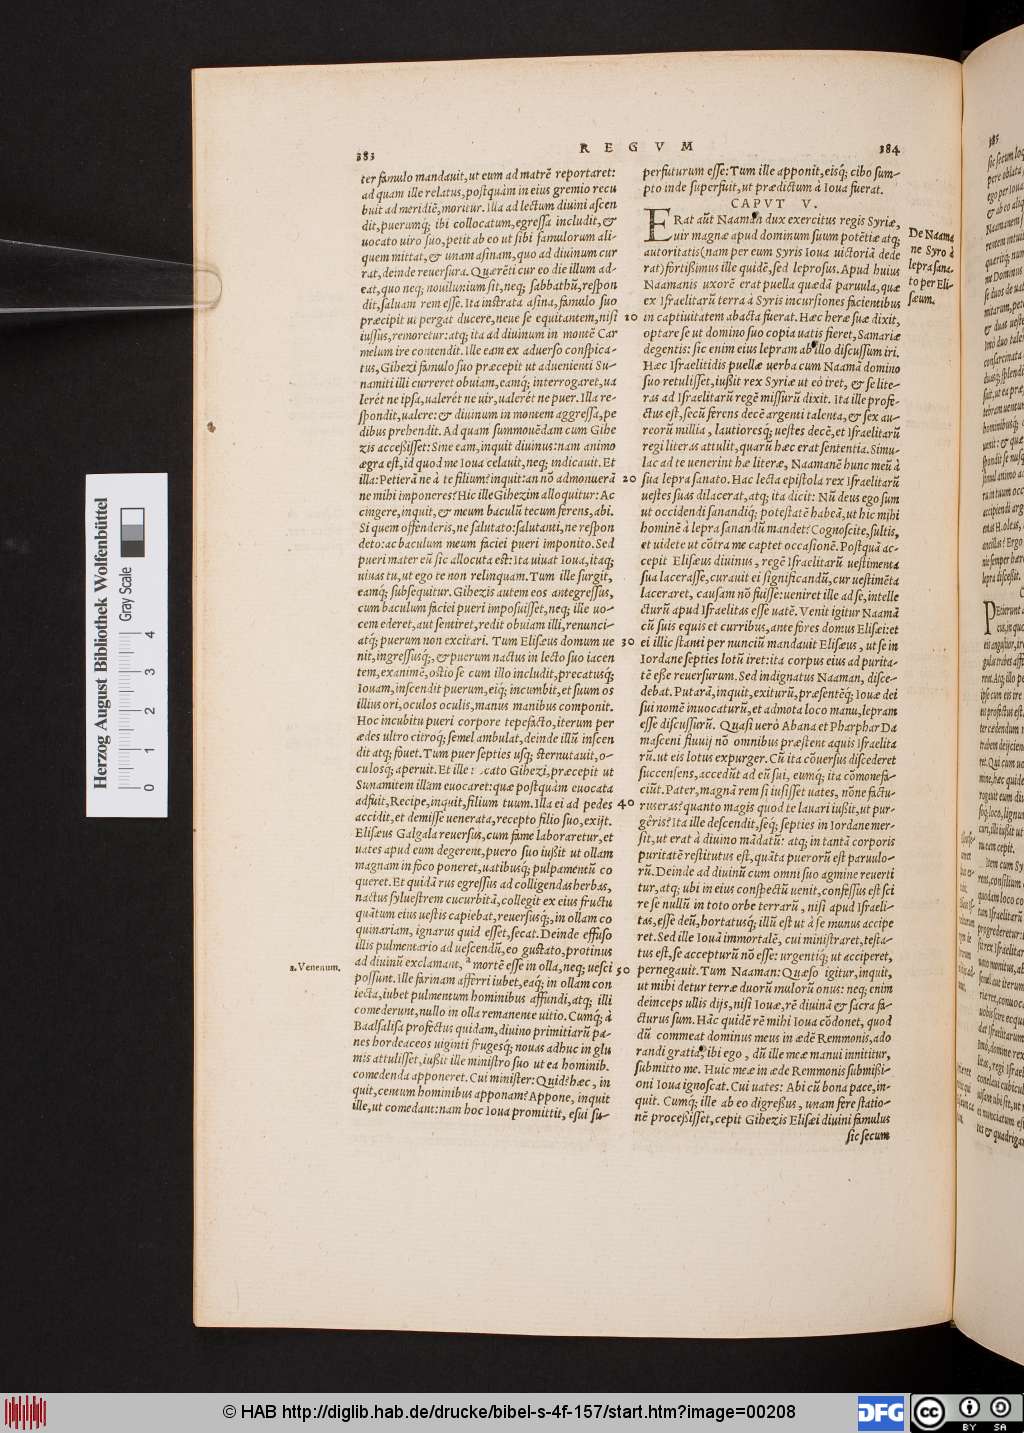 383
REGVM
384
ter famulo mandauit, ut eum ad matrē reportaret:
ad quam ille relatus, postquàm in eius gremio recu
buit ad meridiē, moritur. Illa ad lectum diuini ascen
dit, puerumq́; ibi collocatum, egressa includit, &
uocato uiro suo, petit ab eo ut sibi famulorum ali-
quem mittat, & unam asinam, quo ad diuinum cur
rat, deinde reuersura. Quærēti cur eo die illum ad-
eat, quo neq; nouilunium sit, neq; sabbathū, respon
dit, saluam rem esse. Ita instrata asina, famulo suo
præcipit ut pergat ducere, neue se equitantem, nisi
iussus, remoretur: atq; ita ad diuinum in montē Car
melum ire contendit. Ille eam ex aduerso conspica-
tus, Gihezi famulo suo præcepit ut aduenienti Su-
namiti illi curreret obuiam, eamq́; interrogaret, ua
lerét ne ipsa, ualerét ne uir, ualerét ne puer. Illa re-
spondit, ualere: & diuinum in montem aggressa, pe
dibus prehendit. Ad quam summouēdam cum Gihe
zis accessisset: Sine eam, inquit diuinus: nam animo
ægra est, id quod me Ioua celauit, neq; indicauit. Et
illa: Petierā ne à te filium? inquit: an nō admonuerā
ne mihi imponeres? Hic ille Gihezim alloquitur: Ac
cingere, inquit, & meum baculū tecum ferens, abi.
Si quem offenderis, ne salutato: salutanti, ne respon
deto: ac baculum meum faciei pueri imponito. Sed
pueri mater eū sic allocuta est: Ita uiuat Ioua, itaq;
uiuas tu, ut ego te non relinquam. Tum ille surgit,
eamq́; subsequitur. Gihezis autem eos antegressus,
cum baculum faciei pueri imposuisset, neq; ille uo-
cem ederet, aut sentiret, redit obuiam illi, renunci-
atq́; puerum non excitari. Tum Elisæus domum ue
nit, ingressusq́;, & puerum nactus in lecto suo iacen
tem, exanimē, ostio se cum illo includit, precatusq́;
Iouam, inscendit puerum, eiq́; incumbit, et suum os
illius ori, oculos oculis, manus manibus componit.
Hoc incubitu pueri corpore tepefacto, iterum per
ædes ultro citroq́; semel ambulat, deinde illū inscen
dit atq; fouet. Tum puer septies usq; sternutauit, o-
culosq́; aperuit. Et ille cato Gihezi, præcepit ut
Sunamitem illam euocaret: quæ postquàm euocata
adfuit, Recipe, inquit, filium tuum. Illa ei ad pedes
accidit, et demisse uenerata, recepto filio suo, exijt.
Elisæus Galgala reuersus, cum fame laboraretur, et
uates apud eum degerent, puero suo iussit ut ollam
magnam in foco poneret, uatibusq́; pulpamentū co
queret. Et quidā rus egressus ad colligendas herbas,
nactus syluestrem cucurbitā, collegit ex eius fructu
quātum eius uestis capiebat, reuersusq́;, in ollam co
quinariam, ignarus quid esset, secat. Deinde effuso
illis pulmentario ad uescendū, eo gustato, protinus
ad diuinū exclamant, ª mortē esse in olla, neq; uesci
possunt. Ille farinam afferri iubet, eaq́; in ollam con
iecta, iubet pulmentum hominibus affundi, atq; illi
comederunt, nullo in olla remanente uitio. Cumq́; à
Baalsalisa profectus quidam, diuino primitiarū pa-
nes hordeaceos uiginti frugesq́; nouas adhuc in glu
mis attulisset, iussit ille ministro suo ut ea hominib.
comedenda apponeret. Cui minister: Quid? hæc, in
quit, centum hominibus apponam? Appone, inquit
ille, ut comedant: nam hoc Ioua promittit, esui su-
a. Venenum.
10
20
30
40
50
perfuturum esse: Tum ille apponit, eisq́; cibo sum-
pto inde superfuit, ut prædictum à Ioua fuerat.
CAPVT V.
ERat aūt Naaman dux exercitus regis Syriæ,
uir magnæ apud dominum suum potētiæ atq;
autoritatis (nam per eum Syris Ioua uictoriā dede
rat) fortissimus ille quidē, sed leprosus. Apud huius
Naamanis uxorē erat puella quædā paruula, quæ
ex Israelitarū terra à Syris incursiones facientibus
in captiuitatem abacta fuerat. Hæc heræ suæ dixit,
optare se ut domino suo copia uatis fieret, Samariæ
degentis: sic enim eius lepram ab illo discussum iri.
Hæc Israelitidis puellæ uerba cum Naamā domino
suo retulisset, iussit rex Syriæ ut eò iret, & se lite-
ras ad Israelitarū regē missurū dixit. Ita ille profe-
ctus est, secū ferens decē argenti talenta, & sex au-
reorū millia, lautioresq́; uestes decē, et Israelitarū
regi literas attulit, quarū hæc erat sententia. Simu-
lac ad te uenerint hæ literæ, Naamanē hunc meū à
sua lepra sanato. Hac lecta epistola rex Israelitarū
uestes suas dilacerat, atq; ita dicit: Nū deus ego sum
ut occidendi sanandiq́; potestatē habeā, ut hic mihi
hominē à lepra sanandū mandet? Cognoscite, sultis,
et uidete ut cōtra me captet occasionē. Postquā ac-
cepit Elisæus diuinus, regē Israelitarū uestimenta
sua lacerasse, curauit ei significandū, cur uestimēta
laceraret, causam nō fuisse: ueniret ille ad se, intelle
cturū apud Israelitas esse uatē. Venit igitur Naamā
cū suis equis et curribus, ante fores domus Elisæi: et
ei illic stanti per nunciū mandauit Elisæus, ut se in
Iordane septies lotū iret: ita corpus eius ad purita-
tē esse reuersurum. Sed indignatus Naaman, disce-
debat. Putarā, inquit, exiturū, præsentēq́; Iouæ dei
sui nomē inuocaturū, et admota loco manu, lepram
esse discussurū. Quasi uerò Abana et Pharphar Da
masceni fluuij nō omnibus præstent aquis Israelita
rū. ut eis lotus expurger. Cū ita cōuersus discederet
succensens, accedūt ad eū sui, eumq́; ita cōmonefa-
ciūt. Pater, magnā rem si iusisset uates, nōne factu-
rus eras? quanto magis quod te lauari iussit, ut pur-
geris? Ita ille descendit, seq́; septies in Iordane mer-
sit, ut erat à diuino mādatū: atq; in tantā corporis
puritatē restitutus est, quāta puerorū est paruulo-
rū. Deinde ad diuinū cum omni suo agmine reuerti
tur, atq; ubi in eius conspectū uenit, confessus est sci
re se nullū in toto orbe terrarū, nisi apud Israeli-
tas, esse deū, hortatusq́; illū est ut à se munus accipe
ret. Sed ille Iouā immortalē, cui ministraret, testa-
tus est, se accepturū nō esse: urgentiq́; ut acciperet,
pernegauit. Tum Naaman: Quæso igitur, inquit,
ut mihi detur terræ duorū mulorū onus: neq; enim
deinceps ullis dijs, nisi Iouæ, rē diuinā & sacra fa-
cturus sum. Hāc quidē rē mihi Ioua cōdonet, quod
dū commeat dominus meus in ædē Remmonis, ado
randi gratia, ibi ego, dū ille meæ manui innititur,
submitto me. Huic meæ in æde Remmonis submissi-
oni Ioua ignoscat. Cui uates: Abi cū bona pace, in-
quit. Cumq́; ille ab eo digressus, unam fere statio-
nē processisset, cepit Gihezis Elisæi diuini famulus
sic secum
De Naama
ne Syro à
lepra sana-
to per Eli-
sæum.
385
Herzog August Bibliothek Wolfenbüttel
Gray Scale
0 1 2 3 4
© HAB http://diglib.hab.de/drucke/bibel-s-4f-157/start.htm?image=00208
DFG
cc BY SA